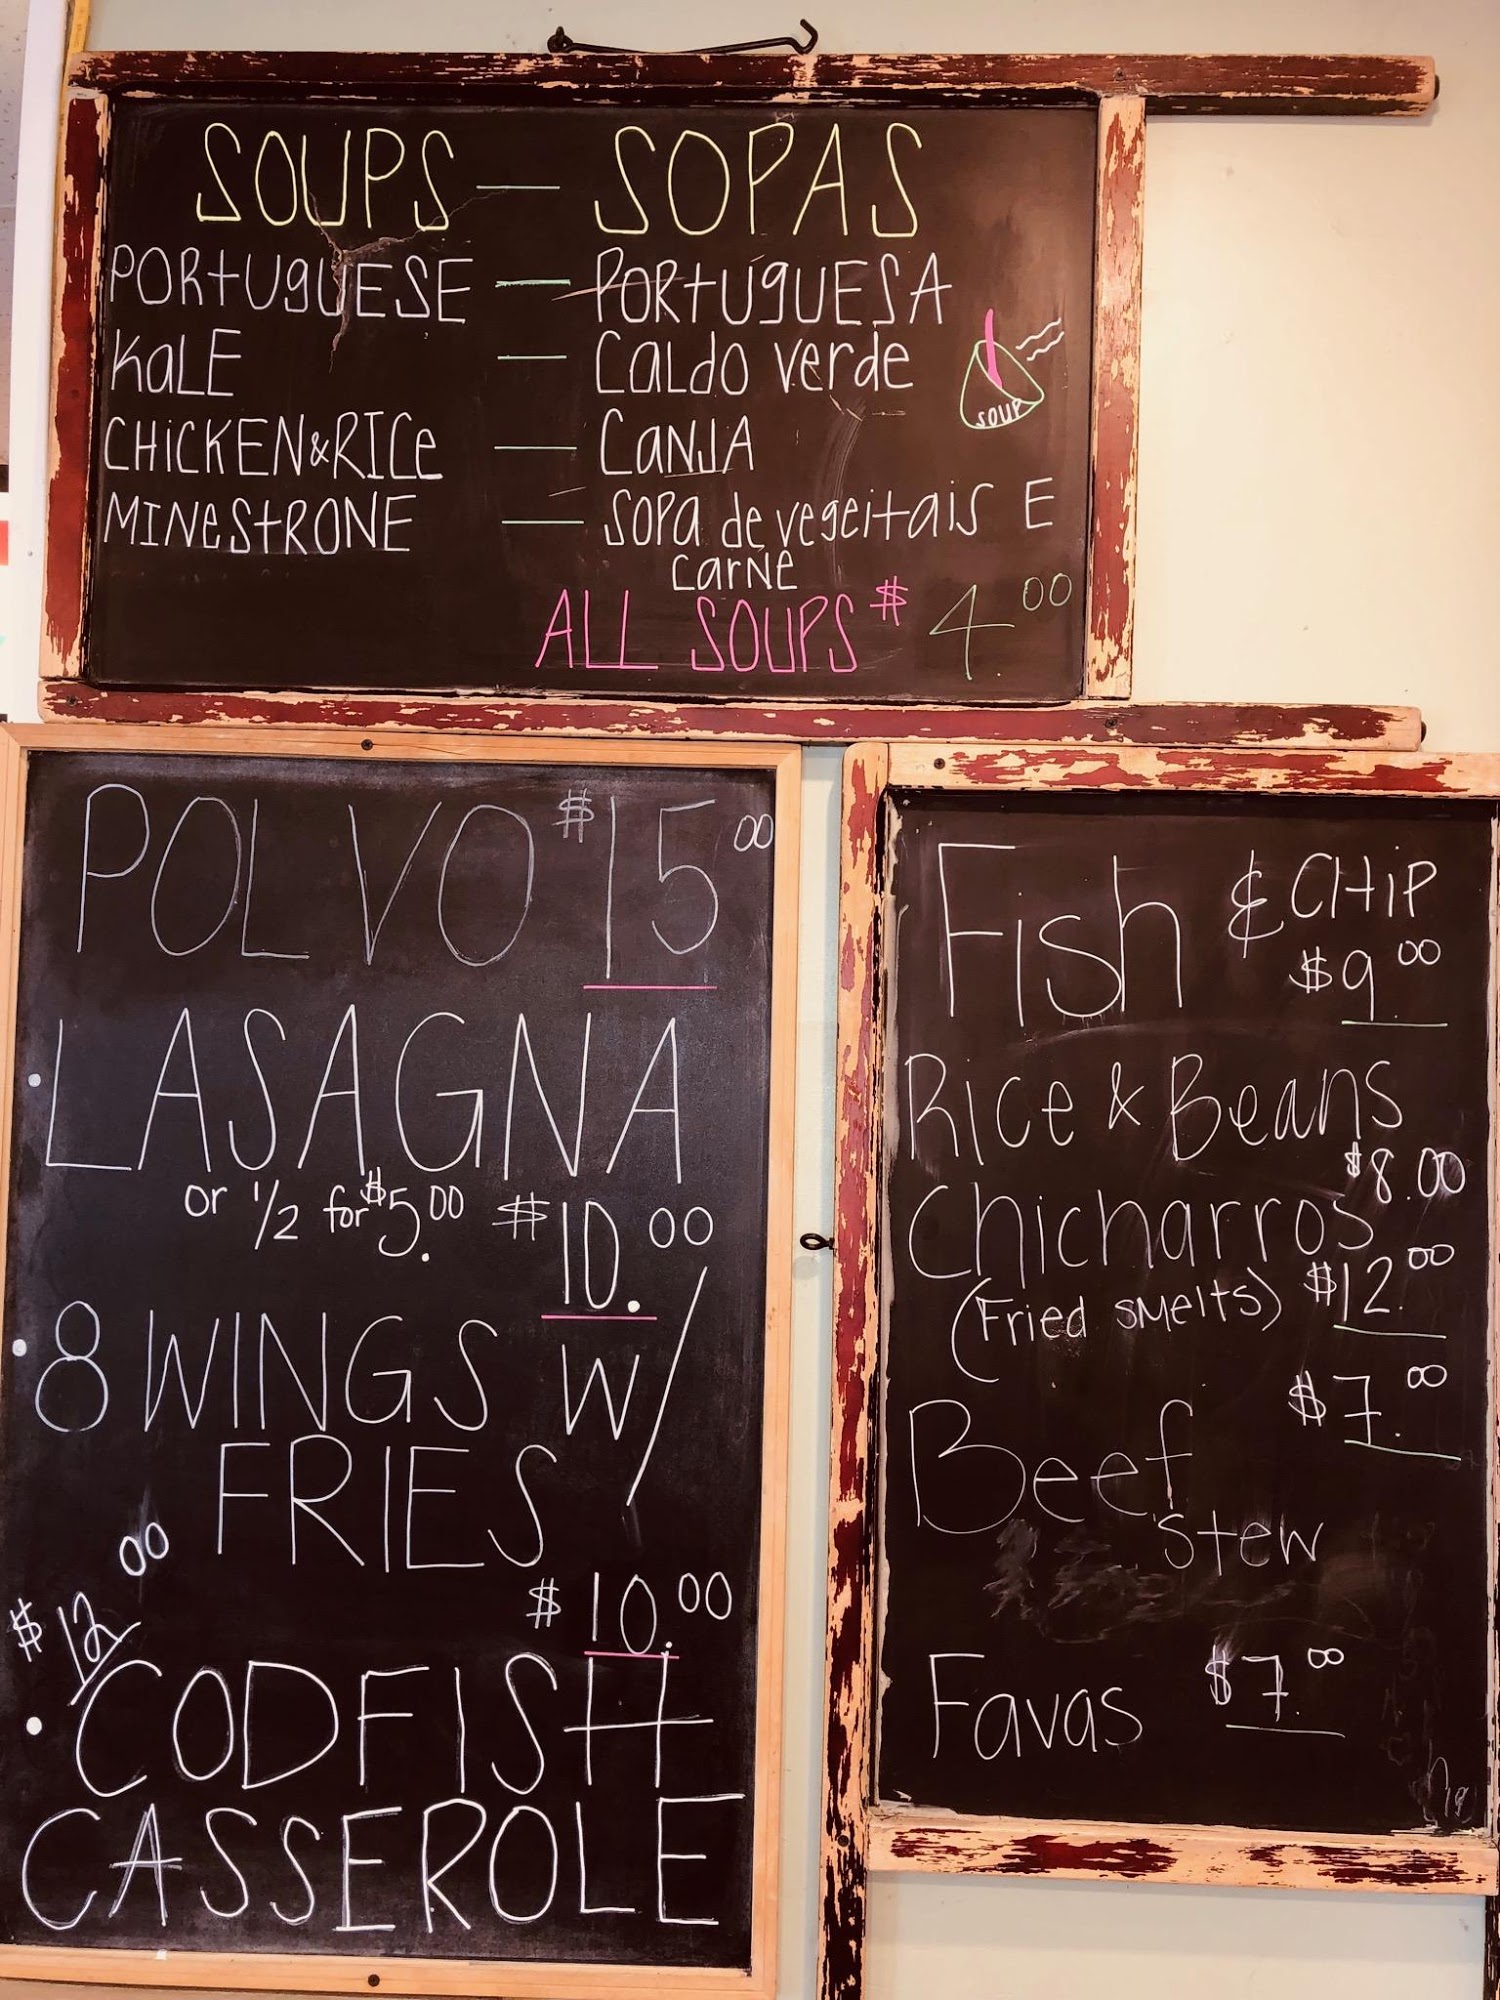 SOUPS — SOPAS
PORTUGUESE — PORTUGUESA
KALE — CALDO verde
CHICKEN & RICE — CANJA
MINESTRONE — SOPA de vegeitais E
carne
SOUP
ALL SOUPS $4.00
POLVO $15.00
· LASAGNA
or 1/2 for $5.00 $10.00
· 8 WINGS W/
FRIES
$10.00
$12.00
· CODFISH
CASSEROLE
Fish & CHIP
$9.00
Rice & Beans
$8.00
Chicharros
(Fried smelts) $12.00
$7.00
Beef
stew
Favas $7.00